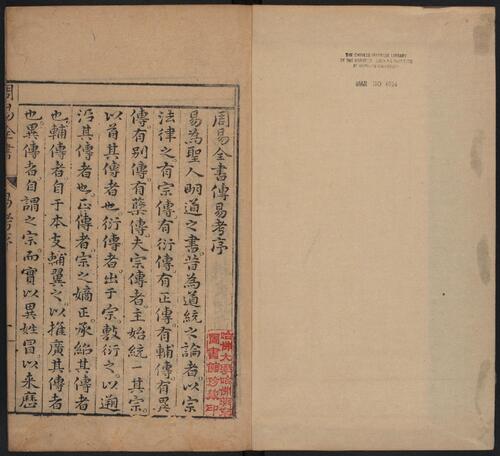 周易全書傳易考序
易為聖人明道之書昔為道統之論者以宗
法律之有宗傳有衍傳有正傳有輔傳有異
傳有別傳有蘖傳夫宗傳者主始統一其宗
以首其傳者也衍傳者出于宗敷衍之以遡
沿其傳者也正傳者宗之嫡正承紹其傳者
也輔傳者自于本支輔翼之以推廣其傳者
也異傳者自謂之宗而實以異姓冒以來歷
周易全書
易考序
哈佛大學哈佛燕京
圖書館珍藏印
THE CHINESE-JAPANESE LIBRARY
OF THE HARVARD-YENCHING INSTITUTE
AT HARVARD UNIVERSITY